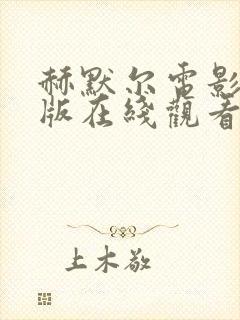 赫默尔电影
版在线觀看
上木敬